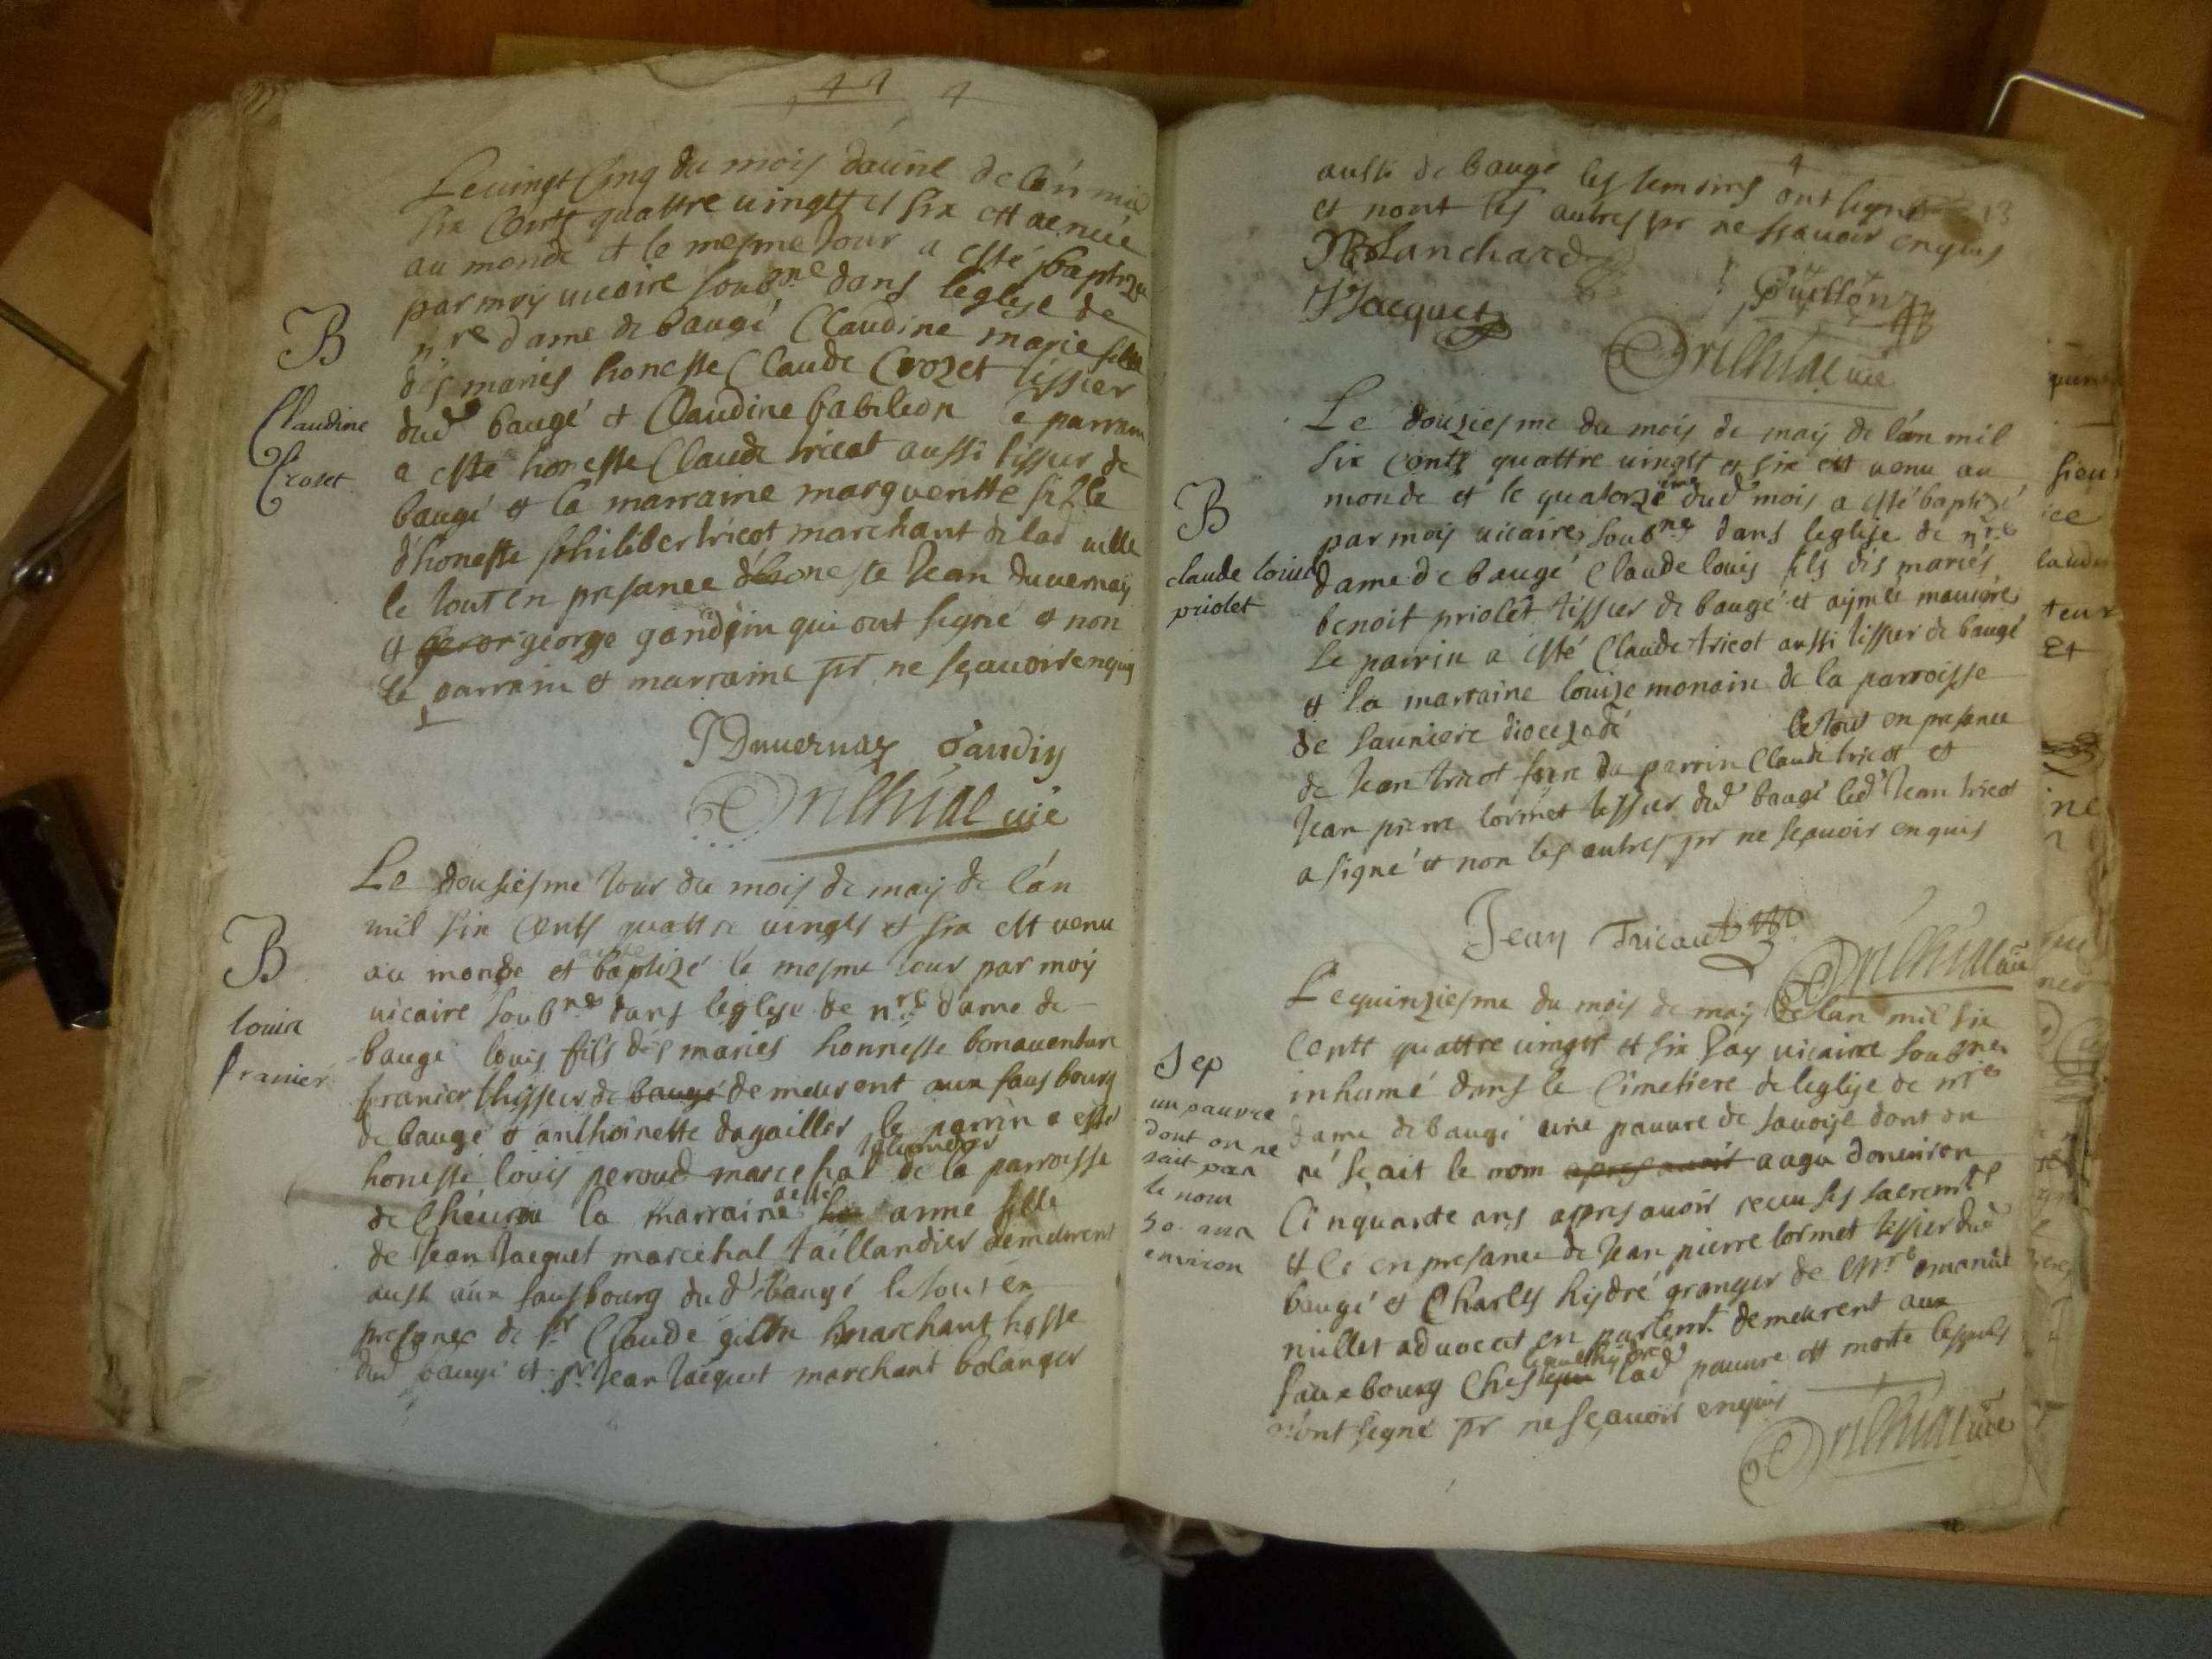 Le vingt Cinq du mois dauril de lan mil
six Cents quattre uingts et six est uenue
au monde et le mesme Jour a esté baptizee
par moy uicaire soubne dans leglise de
nre dame de baugé Claudine marie fille
des maries honeste Claude Crozet tissier
dud baugé et Claudine babileon le parrain
a esté honeste Claude tricot aussi tissier de
baugé et la marraine margueritte fille
d'honeste philiber tricot marchant de lad uille
le tout en presance d'honeste Jean duuernay
et george gandin qui ont signé et non
le parrain et marraine pr ne sçauoir enquis
B
Claudine
Croset
JDuuernay Gandin
uic
Le dousiesme Jour du mois de may de lán
mil six Cents quattre uingts et six est uenu
au monde et a esté baptizé le mesme Jour par moy
uicaire soubne dans leglise de nre dame de
baugé louis fils des maries honneste bonauenture
franier thissier de baugé demeurent aux fausbourg
de baugé et anthoinette dagallier le parrin a esté
honeste louis peroud marechal taliandier de la parroisse
de la marraine a esté anne fille
de Jean Jacquet marechal taillandier demeurent
aussi aux fausbourg dud baugé le tout en
presance de sr Claude marchant hoste
dud baugé et sr Jean Jacquet marchant bolanger
B
louis
franier
4
13
aussi de baugé les temoins ont signé
et nont les autres pr ne sçauoir enquis
Blanchard
JJacquet
Guillon
uic
Le douziesme du mois de may de lán mil
six Cents quattre uingts et six est uenu au
monde et le quatorzeime dud mois a esté baptizé
par moy uicaire soubne dans leglise de nre
dame de baugé Claude louis fils des mariés
benoit priolet tissier de baugé et aymée
Le parrin a esté Claude tricot aussi tissier de baugé
et la marraine louize monain de la parroisse
de sauniere diocoze de le tout en presance
de Jean tricot frere du parrin Claude tricot et
Jean pierre lormet tissier dud baugé led Jean tricot
a signé et non les autres pr ne sçauoir enquis
B
claude louis
priolet
Jean Tricaut
uic
Le quinziesme du mois de may de lan mil six
Cents quattre uingts et six Jay uicaire soubne
inhumé dans le Cimetiere de leglise de nre
dame de baugé une pauure de sauoye dont on
ne sçait le nom apres auoir aagée donuiron
Cinquante ans apres auoir receu ses sacremts
et Ce en presance de Jean pierre lormet tissier dud
baugé et Charles hydré granger de Mre emanuel
nuillet aduocat en parlemt demeurent aux
fauxbourg Ches lequel hydré lad pauure est morte lesquels
nont signé pr ne sçauoir enquis
uic
Sep
un pauvre
dont on ne
sait pas
le nom
50 ans
environ